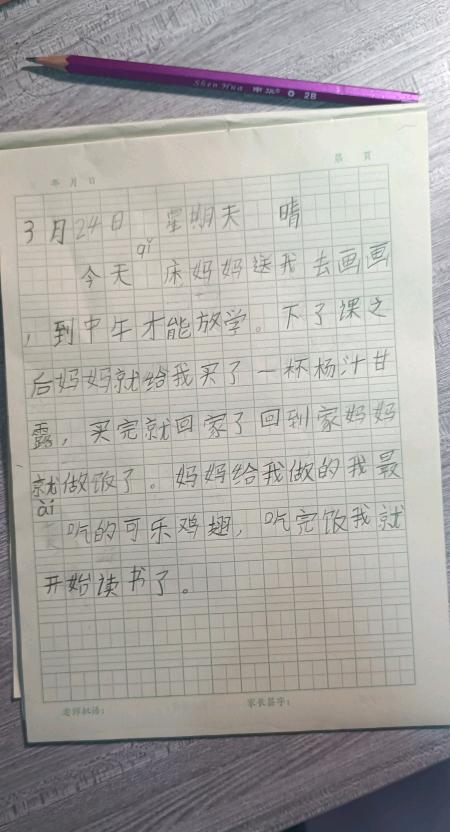 Shen Hua 2B
第 页
年 月 日
3月24日 星期天 晴
今天qǐ床妈妈送我去画画
，到中午才能放学。下了课之
后妈妈就给我买了一杯杨汁甘
露，买完就回家了回到家妈妈
就做饭了。妈妈给我做的我最
ài吃的可乐鸡翅，吃完饭我就
开始读书了。
老师批语：
家长签字：